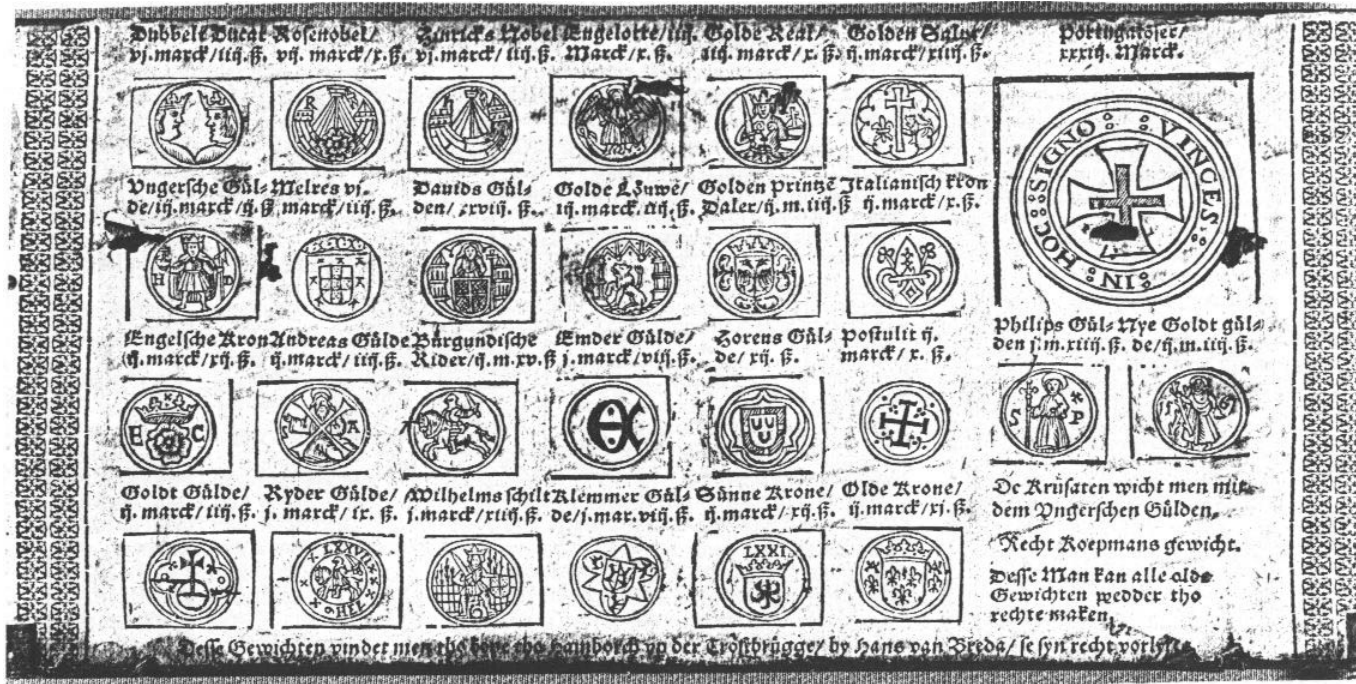 Dubbelt Ducat
vj. marck/ iiij. ß.
Rosenobel/
vij. marck/ x. ß.
Hinricks Nobel
vj. marck/ iiij. ß.
Engelotte/ iiij.
Marck/ x. ß.
Golde Real/
iiij. marck/ x. ß.
Golden Salur/
ij. marck/ xiiij. ß.
Portugaloser/
xxxiij. Marck.
R
IN HOC SIGNO VINCES
Vngersche Gül-
de/ iij. marck/ ij. ß
Melres vj.
marck/ iiij. ß.
Dauids Gül-
den/ xxviij. ß.
Golde Löuwe/
iij. marck/ iiij. ß.
Golden Printzē
Daler/ ij. m. iiij. ß
Italianisch kron
ij. marck/ x. ß.
H D
Engelsche Kron
ij. marck/ xij. ß.
Andreas Gülde
ij. marck/ iiij. ß.
Burgundische
Rider/ ij. m. xv. ß
Emder Gülde/
j. marck/ viij. ß.
Horens Gül-
de/ xij. ß.
Postulit ij.
marck/ x. ß.
Philips Gül-
den j. m. xiiij. ß.
Nye Goldt gül-
de/ ij. m. iiij. ß.
E C
A
S P
Goldt Gülde/
ij. marck/ iiij. ß.
Ryder Gülde/
j. marck/ ix. ß.
Wilhelms schilt
j. marck/ xiiij. ß.
Klemmer Gül-
de/ j. mar. viij. ß.
Sünne Krone/
ij. marck/ xij. ß.
Olde Krone/
ij. marck/ xj. ß.
De Krüsaten wicht men mit
dem Vngerschen Gülden.
Recht Koepmans gewicht.
Desse Man kan alle olde
Gewichten wedder tho
rechte maken.
LXXVI
HEL
LXXI
Desse Gewichten vindet men tho kope tho Hamborch vp der Tröstbrügge/ by Hans van Breda/ se syn recht